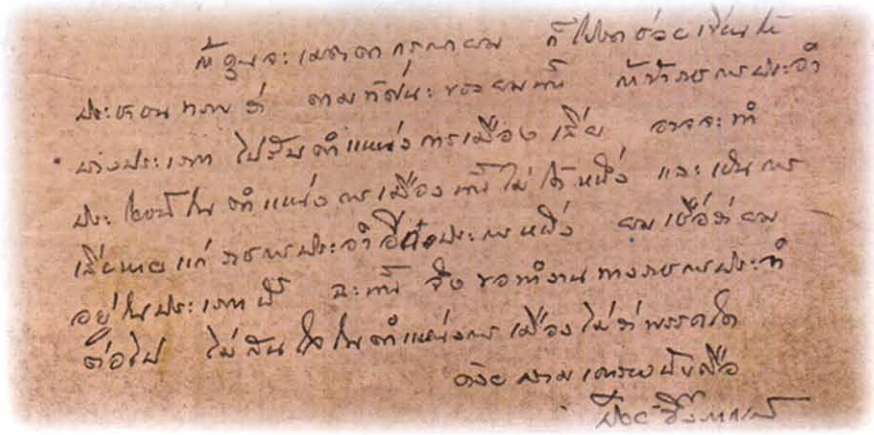 ถ้าคุณจะเมตตากรุณาผม ก็โปรดช่วยเขียนให้
ประชาชนทราบว่า ตามทัศนะของผมนั้น ถ้าข้าราชการประจำ
บางประเภท ไปรับตำแหน่งการเมือง เสีย อาจจะทำ
ประโยชน์ในตำแหน่งการเมืองนั้นไม่ได้หนึ่ง และเป็นการ
เสียหายแก่ราชการประจำอีกประการหนึ่ง ผมเชื่อว่าผม
อยู่ในประเภทนี้ ฉะนั้น จึงขอทำงานทางราชการประจำ
ต่อไป ไม่สนใจในตำแหน่งการเมืองไม่ว่าพรรคใด
ด้วยความเคารพนับถือ
ป๋วย อึ๊งภากรณ์